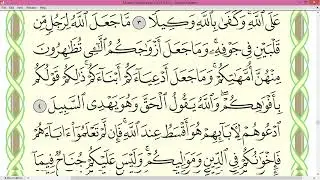 عَلَى ٱللَّهِ ۚ وَكَفَىٰ بِٱللَّهِ وَكِيلًا ٣ مَّا جَعَلَ ٱللَّهُ لِرَجُلٍ مِّن
قَلْبَيْنِ فِى جَوْفِهِۦ ۚ وَمَا جَعَلَ أَزْوَٰجَكُمُ ٱلَّـٰٓـِٔى تُظَـٰهِرُونَ
مِنْهُنَّ أُمَّهَـٰتِكُمْ ۚ وَمَا جَعَلَ أَدْعِيَآءَكُمْ أَبْنَآءَكُمْ ۚ ذَٰلِكُمْ قَوْلُكُم
بِأَفْوَٰهِكُمْ ۖ وَٱللَّهُ يَقُولُ ٱلْحَقَّ وَهُوَ يَهْدِى ٱلسَّبِيلَ ٤
ٱدْعُوهُمْ لِـَٔابَآئِهِمْ هُوَ أَقْسَطُ عِندَ ٱللَّهِ ۚ فَإِن لَّمْ تَعْلَمُوٓا۟ ءَابَآءَهُمْ
فَإِخْوَٰنُكُمْ فِى ٱلدِّينِ وَمَوَٰلِيكُمْ ۚ وَلَيْسَ عَلَيْكُمْ جُنَاحٌ فِيمَآ